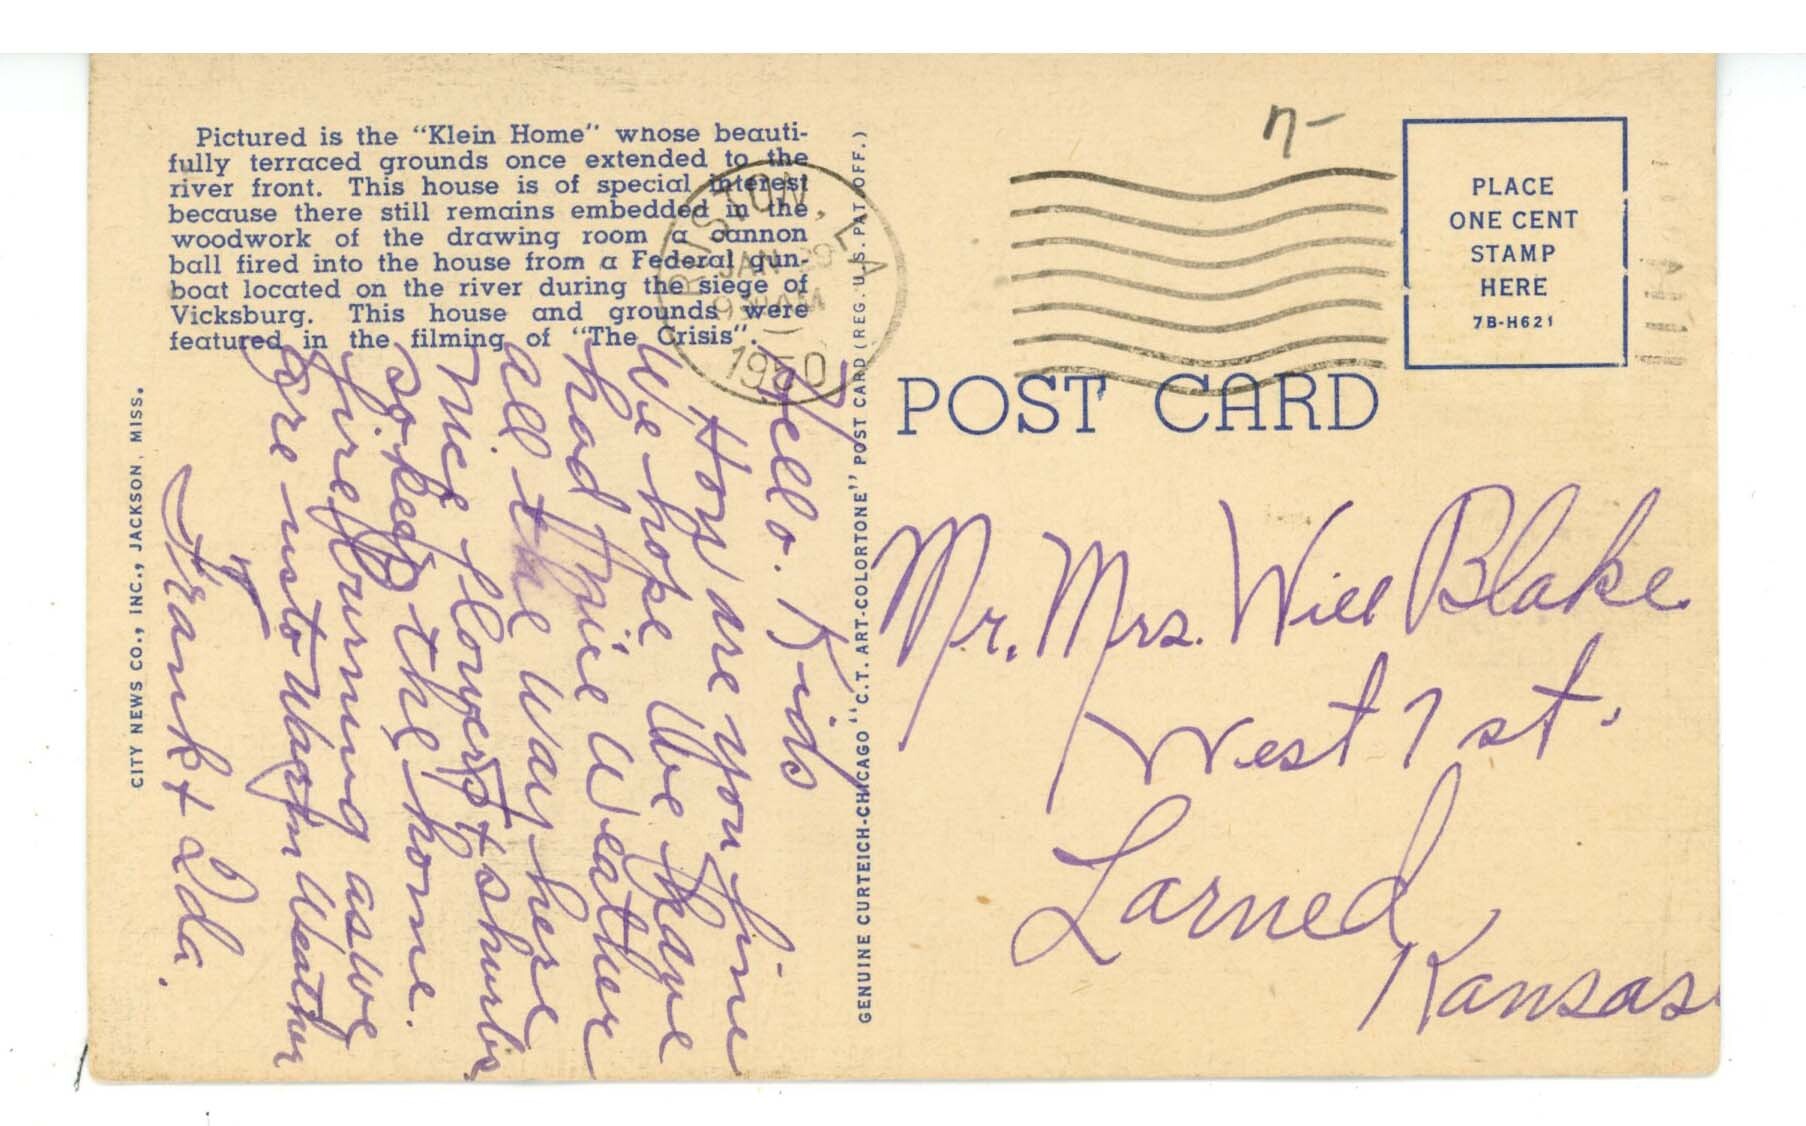 Pictured is the "Klein Home" whose beauti-
fully terraced grounds once extended to the
river front. This house is of special interest
because there still remains embedded in the
woodwork of the drawing room a cannon
ball fired into the house from a Federal gun-
boat located on the river during the siege of
Vicksburg. This house and grounds were
featured in the filming of "The Crisis".
CITY NEWS CO., INC., JACKSON, MISS.
Hello. Kids
How are you fine
We hope We have
had Nice Weather
all the way here
Nice flowers & shurbs
the home.
Fire burning as we
are into Warm Weather
Frank & Ida.
GENUINE CURTEICH-CHICAGO "C.T. ART-COLORTONE" POST CARD (REG. U.S. PAT. OFF.)
RUSTON, LA
JAN
930 AM
1950
7-
PLACE
ONE CENT
STAMP
HERE
7B-H621
POST CARD
Mr. Mrs. Will Blake
West 1st.
Larned,
Kansas